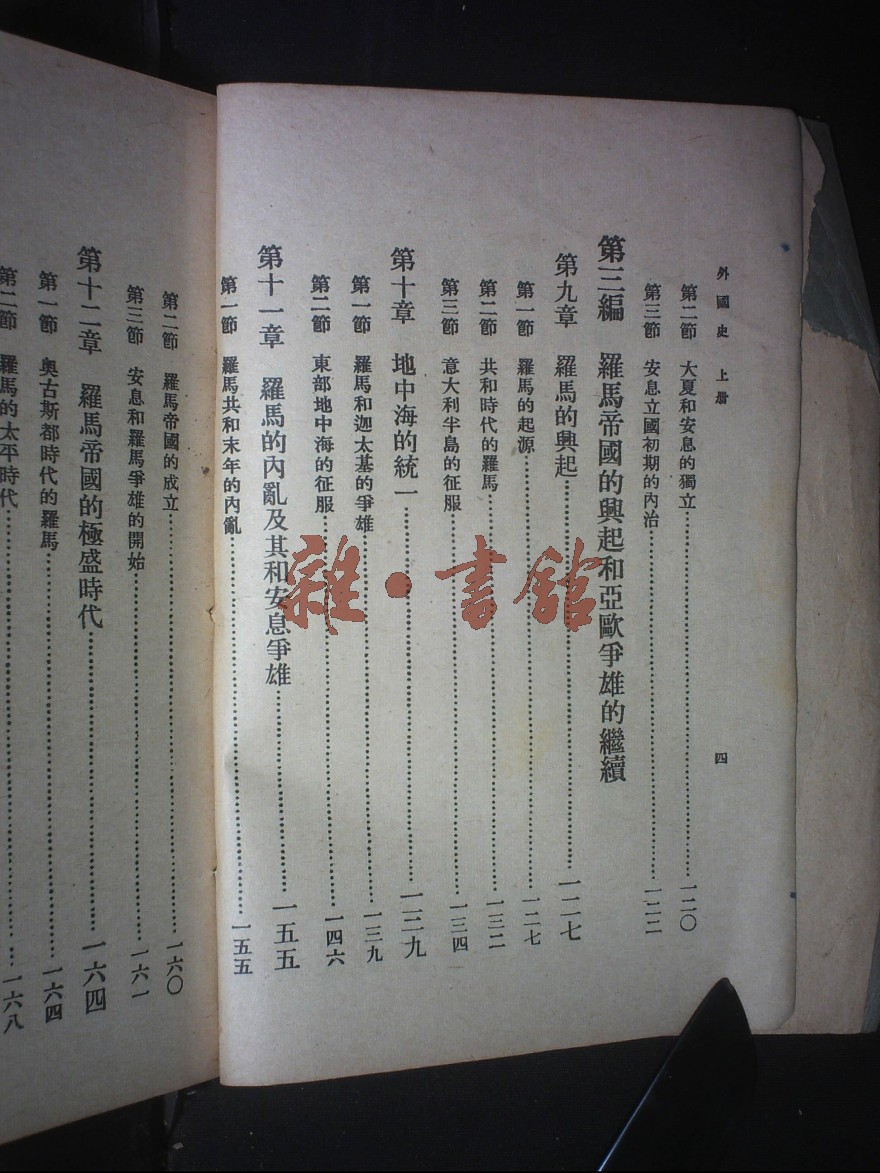 外國史 上册
四
第二節 大夏和安息的獨立……一二〇
第三節 安息立國初期的內治……一二二
第三編 羅馬帝國的興起和亞歐爭雄的繼續
第九章 羅馬的興起……一二七
第一節 羅馬的起源……一二七
第二節 共和時代的羅馬……一三二
第三節 意大利半島的征服……一三四
第十章 地中海的統一……一二九
第一節 羅馬和迦太基的爭雄……一三九
第二節 東部地中海的征服……一四六
第十一章 羅馬的內亂及其和安息爭雄……一五五
第一節 羅馬共和末年的內亂……一五五
第二節 羅馬帝國的成立……一六〇
第三節 安息和羅馬爭雄的開始……一六一
第十二章 羅馬帝國的極盛時代……一六四
第一節 奧古斯都時代的羅馬……一六四
第二節 羅馬的太平時代……一六八
雜·書館